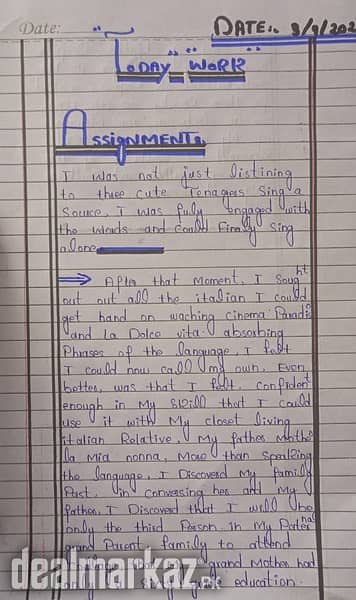 Date:
DATE:. 3/9/202
TODAY WORK
ASSIGNMENT:
I was not just listining
to three cute Tenagers Sing a
Source, I was fuly engaged with
the words and could Finaly Sing
alone
After that moment, I sought
out out all the italian I could
get hand on waching Cinema Paradi
and La Dolce vita. absorbing
Phrases of the language, I felt
I could now call my own. Even
better, was that I felt. Confident
enough in My Skill that I could
use it with My closet living
italian Relative, My father Mothe
la Mia nonna, More than Speaking
the language, I Discoverd My family
Past, in conversing her and My
father, I Discoverd that I will be
only the third Person in My Pater
grand Parent family to attend
grand Mother had
education.
dealmarkaz.pk